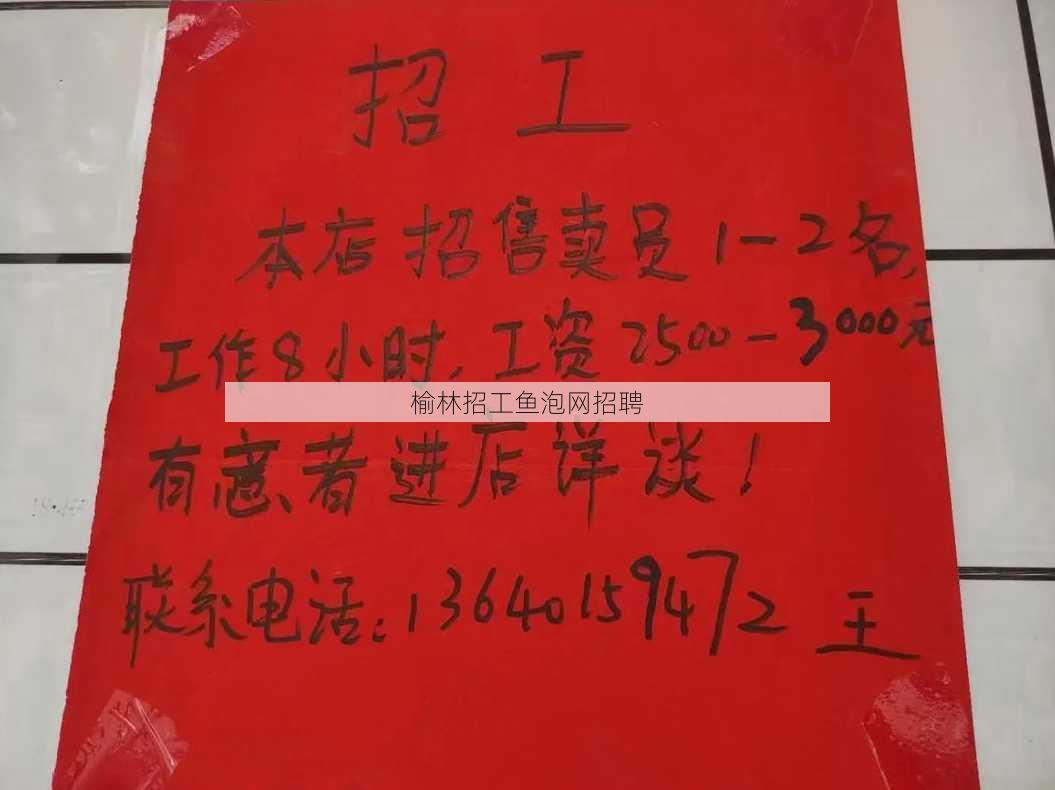 招工
本店招售卖员1-2名,
工作8小时,工资2500-3000元
榆林招工鱼泡网招聘
有意者进店详谈!
联系电话:13640159472 王